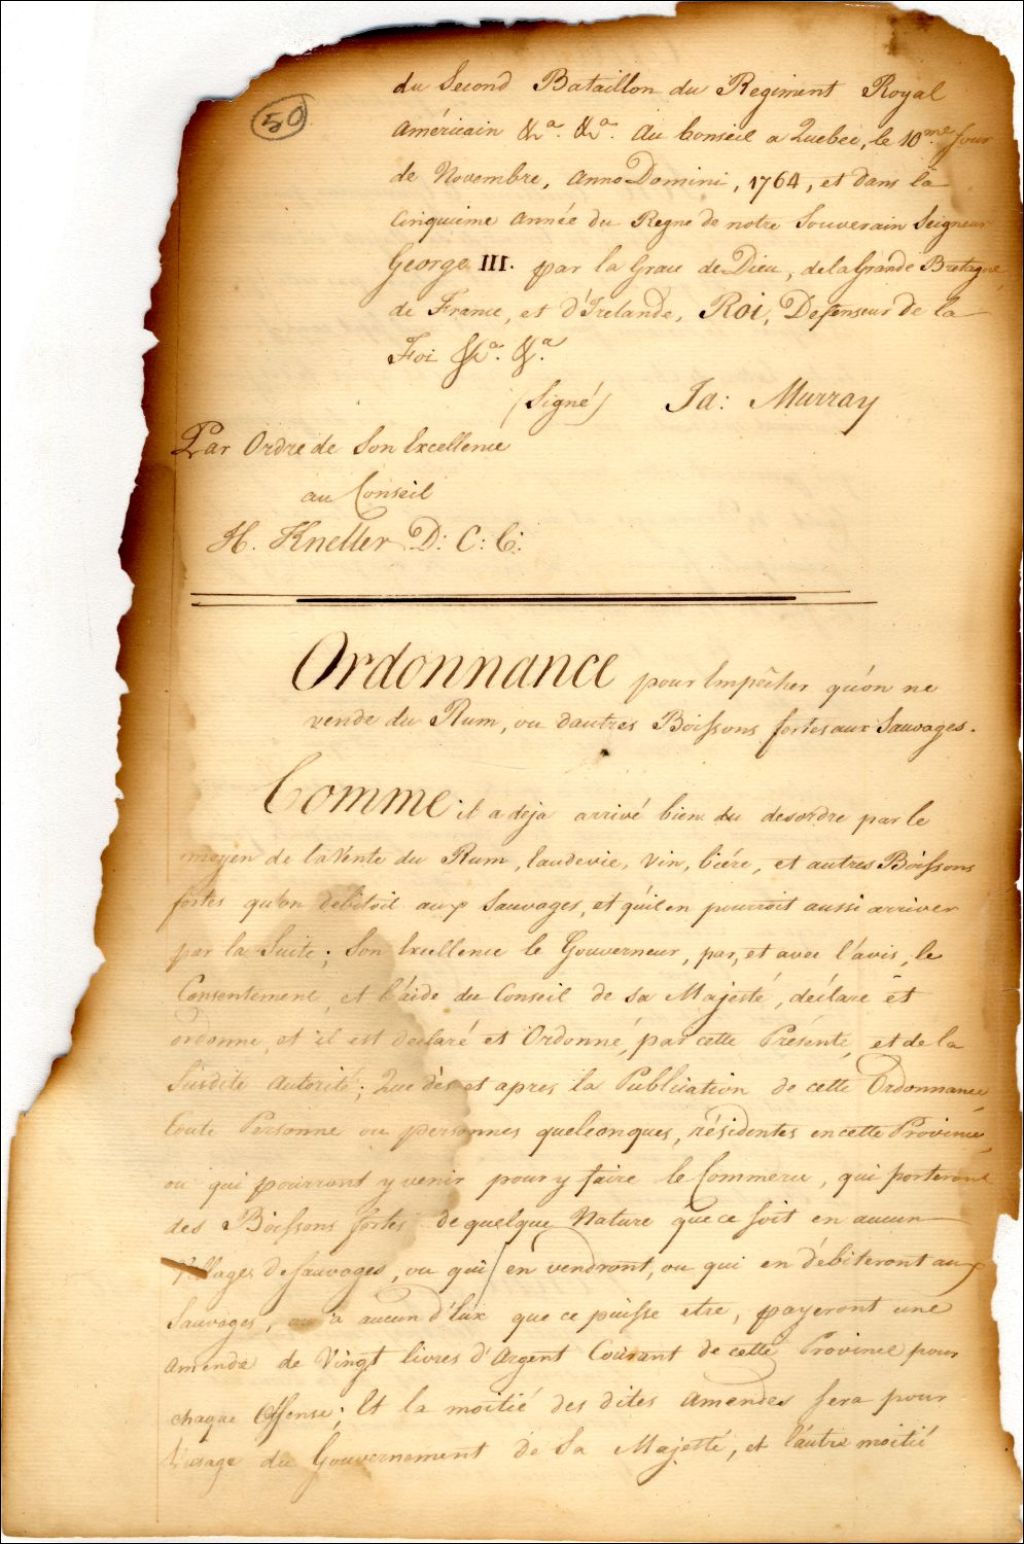 50
du Second Bataillon du Regiment Royal
Américain &ca. &ca. Au Conseil a Quebec, le 10me Jour
de Novembre, Anno Domini, 1764, et dans la
Cinquieme Année du Regne de notre Souverain Seigneur
George III. par la Grace de Dieu, de la Grande Bretagne
de France, et d'Irelande, Roi, Defenseur de la
Foi &ca. &ca.
(Signé) Ja: Murray
Par Ordre de Son Excellence
au Conseil
H. Kneller D: C: C:
Ordonnance pour Empêcher qu'on ne
vende du Rum, ou dautres Boissons fortes aux Sauvages.
Comme il a deja arrivé bien du desordre par le
moyen de la Vente du Rum, Eaudevie, Vin, Ciére, et autres Boissons
fortes qu'on debitoit aux Sauvages, et qu'il en pourroit aussi arriver
par la Suite; Son Excellence le Gouverneur, par, et avec l'avis, le
Consentement, et l'aide du Conseil de Sa Majesté, déclare et
ordonne, et il est declaré et Ordonné, par cette Présente, et de la
Susdite Autorité; Que dès et apres la Publication de cette Ordonnance
toute Personne ou personnes quelconques, résidentes en cette Province,
ou qui pourront y venir pour y faire le Commerce, qui porteront
des Boissons fortes de quelque Nature que ce soit en aucun
Villages de Sauvages, ou qui en vendront, ou qui en débiteront aux
Sauvages, ou à aucun d'Eux que ce puisse etre, payeront une
Amende de Vingt livres d'Argent Courant de cette Province pour
chaque Offense; Et la moitié des dites Amendes sera pour
l'usage du Gouvernement de Sa Majesté, et l'autre moitié